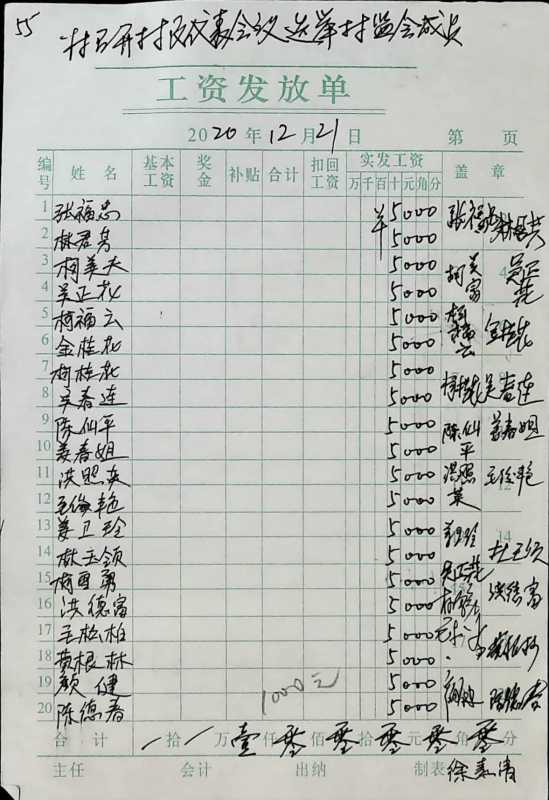 55
村召开村民代表会议选举村监会成员
工资发放单
2020年12月21日 第 页
编号 姓名 基本工资 奖金 补贴 合计 扣回工资 实发工资 万千百十元角分 盖章
1 张福忠 ¥5000 张福忠
2 林君芳 5000 林君芳
3 柯美夫 5000
4 吴正花 5000 吴正花
5 柯福云 5000 柯福云
6 金桂花 5000 金桂花
7 柯桂花 5000
8 吴春连 5000 吴春连
9 陈仙平 5000 陈仙平
10 姜春姐 5000 姜春姐
11 洪照英 5000 洪照英
12 王俊艳 5000 王俊艳
13 姜卫玲 5000
14 林玉领 5000
15 柯勇 5000 吴正花
16 洪德富 5000 洪德富
17 王松柏 5000
18 黄根林 5000
19 颜健 5000
20 陈德春 1000元 5000
合计 拾 万壹仟零佰零拾零元零角零分
主任 会计 出纳 制表 徐素清